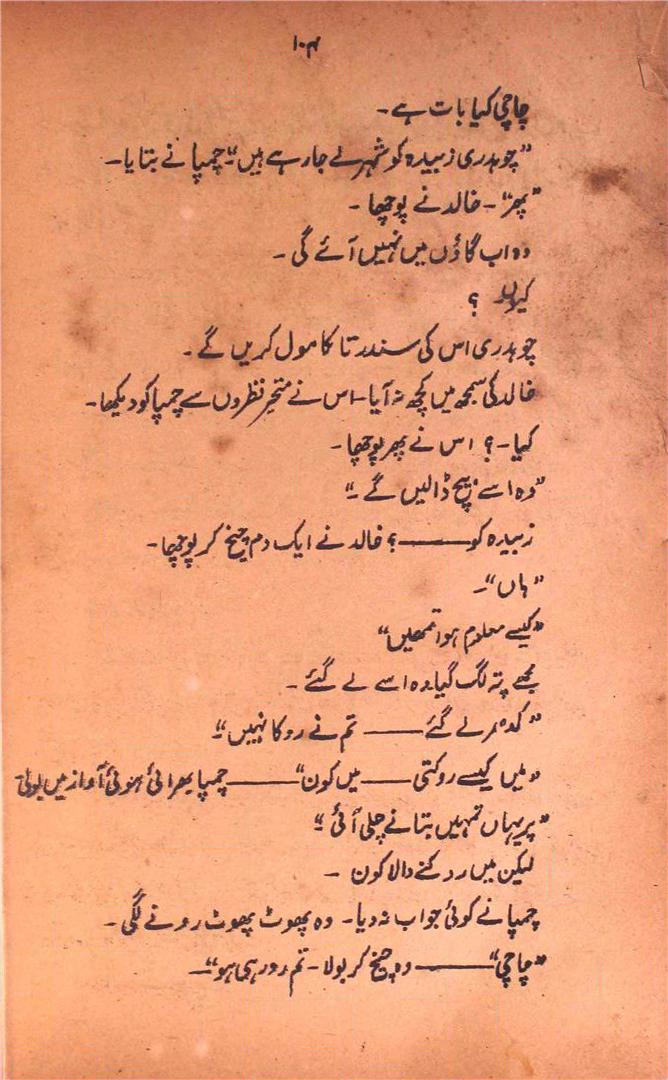 ۱۰۴
چاچی کیا بات ہے۔
”چوہدری زبیدہ کو شہر لے جا رہے ہیں“۔ چمپا نے بتایا۔
”پھر“۔ خالد نے پوچھا۔
وہ اب گاؤں میں نہیں آئے گی۔
کیوں ؟
چوہدری اس کی سندرتا کا مول کریں گے۔
خالد کی سمجھ میں کچھ نہ آیا۔ اس نے متحیر نظروں سے چمپا کو دیکھا۔
کیا۔؟ اس نے پھر پوچھا۔
”وہ اسے بیچ ڈالیں گے۔“
زبیدہ کو ——— ؟ خالد نے ایک دم چیخ کر پوچھا۔
”ہاں“۔
”کیسے معلوم ہوا تمھیں“
مجھے پتہ لگ گیا وہ اسے لے گئے۔
”کدھر لے گئے ——— تم نے روکا نہیں“۔
”میں کیسے روکتی ——— میں کون“ ——— چمپا بھرائی ہوئی آواز میں بولی۔
”پر یہاں تمہیں بتانے چلی آئی۔“
لیکن میں روکنے والا کون ۔
چمپا نے کوئی جواب نہ دیا۔ وہ پھوٹ پھوٹ رونے لگی۔
”چاچی“ ——— وہ چیخ کر بولا۔ تم رو رہی ہو“۔